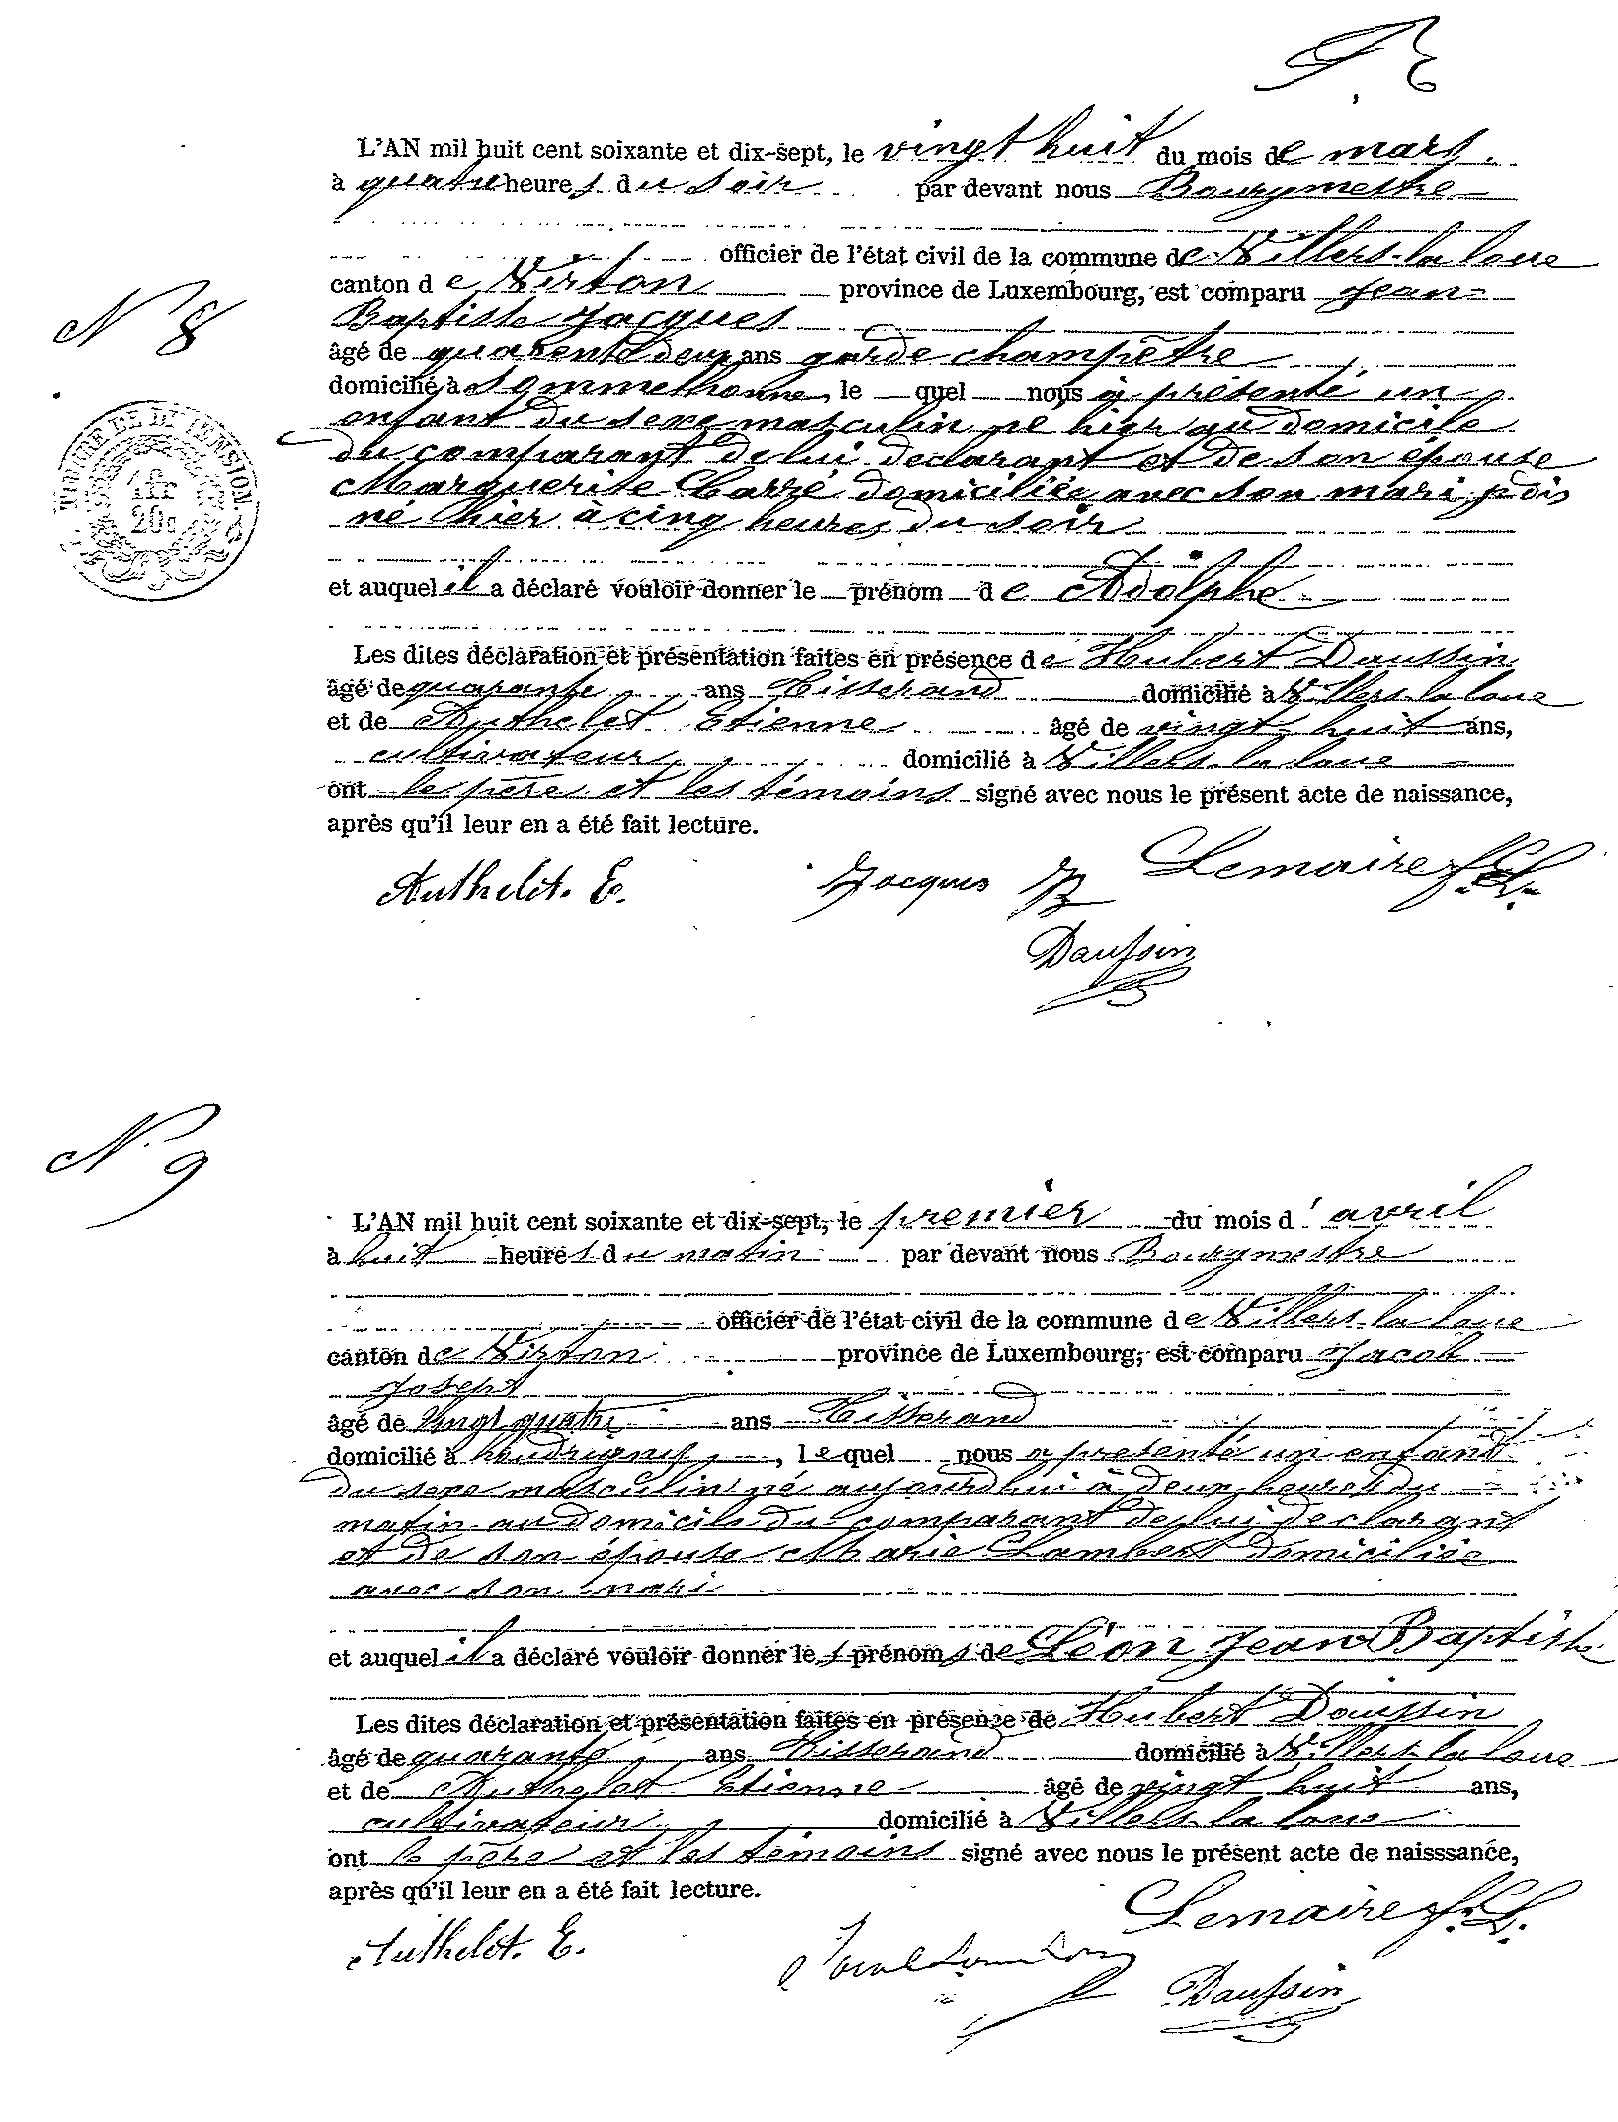 L'AN mil huit cent soixante et dix-sept, le vingt huit du mois de mars.
à quatre heures du soir par devant nous Bourgmestre
officier de l'état civil de la commune de Villers-la loue
N 8
canton de Virton province de Luxembourg, est comparu Jean-
Baptiste Jacques
âgé de quarente deux ans garde champêtre
domicilié à Sommethonne, le quel nous a présenté un
enfant du sexe masculin né hier au domicile
du comparant de lui déclarant et de son épouse
Marguerite domiciliée avec son mari, je dis
né hier à cinq heures du soir
TIMBRE DE DIMENSION
1 fr
20c
et auquel il a déclaré vouloir donner le prénom de Adolphe
Les dites déclaration et présentation faites en présence de Hubert Daussin
âgé de quarante ans Tisserand domicilié à Villers-la loue
et de Authelet Etienne âgé de vingt huit ans,
cultivateur domicilié à Villers-la loue
ont le père et les témoins signé avec nous le présent acte de naissance,
après qu'il leur en a été fait lecture.
Authelet. E. Jacques JB Lemaire
Daussin
N. 9
L'AN mil huit cent soixante et dix-sept, le premier du mois d'avril
à huit heures du matin par devant nous Bourgmestre
officier de l'état civil de la commune de Villers-la loue
canton de Virton province de Luxembourg, est comparu Jacob
Joseph
âgé de vingt quatre ans Tisserand
domicilié à houdrigny, lequel nous a présenté un enfant
du sexe masculin né aujourdhui à deux heures du
matin au domicile du comparant de lui déclarant
et de son épouse Marie Lambert domiciliée
avec son mari
et auquel il a déclaré vouloir donner les prénoms de Léon Jean Baptiste
Les dites déclaration et présentation faites en présence de Hubert Daussin
âgé de quarante ans Tisserand domicilié à Villers-la loue
et de Authelet Etienne âgé de vingt huit ans,
cultivateur domicilié à Villers-la loue
ont le père et les témoins signé avec nous le présent acte de naisssance,
après qu'il leur en a été fait lecture.
Lemaire
Authelet. E.
Daussin